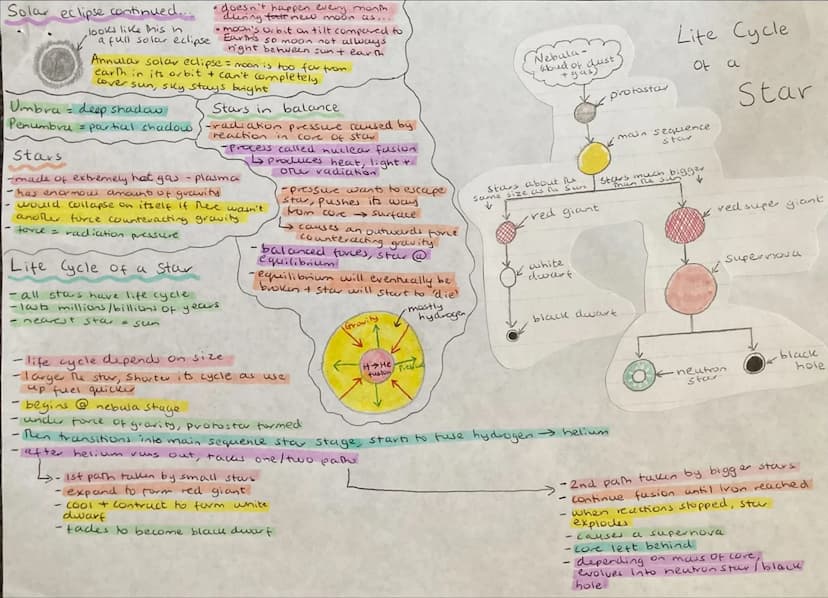 Solar eclipse continued...
looks like this in
a full solar eclipse
• doesn't happen every month
during new moon as...
• moon's orbit on tilt compared to
Earth's so moon not always
right between sun + earth
Annular solar eclipse = moon is too far from
earth in its orbit + can't completely
cover sun, sky stays bright
Umbra = deep shadow
Penumbra = partial shadow
Stars
- made of extremely hot gas - plasma
- has enormous amount of gravity
- would collapse on itself if there wasn't
another force counteracting gravity
- force = radiation pressure
Stars in balance
- radiation pressure caused by
reaction in core of star
- process called nuclear fusion
↳ produces heat, light +
other radiation
- pressure wants to escape
star, pushes its way
from core → surface
→ causes an outwards force
counteracting gravity
- balanced forces, star @
equilibrium
- equilibrium will eventually be
broken + star will start to 'die'
mostly
hydrogen
Gravity
H → He
fusion
Pressure
Life Cycle of a Star
- all stars have life cycle
- lasts millions/billions of years
- nearest star = sun
- life cycle depends on size
- larger the star, shorter its cycle as use
up fuel quicker
- begins @ nebula stage
- under force of gravity, protostar formed
- then transitions into main sequence star stage, starts to fuse hydrogen → helium
- after helium runs out, takes one/two paths
- 1st path taken by small stars
- expand to form red giant
- cool + contract to form white
dwarf
- fades to become black dwarf
- 2nd path taken by bigger stars
- continue fusion until iron reached
- when reactions stopped, star
explodes
- causes a supernova
- core left behind
- depending on mass of core,
evolves into neutron star/black
hole
Life Cycle
of a
Star
Nebula -
cloud of dust
+ gas
protostar
main sequence
star
stars about the
same size as the sun
stars much bigger
than the sun
red giant
white
dwarf
black dwarf
red super giant
supernova
neutron
star
black
hole